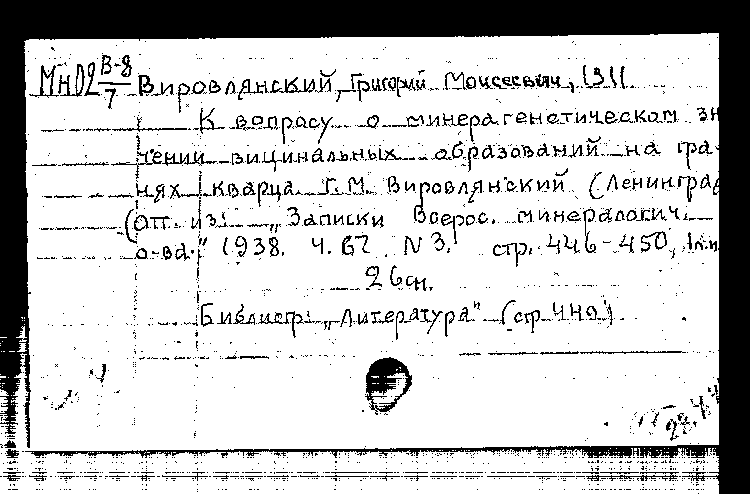 МнD2 В-8/7 Вировлянский, Григорий Моисеевич, 1911.
К вопросу о минерагенетическом зн
чении вицинальных образований на гра-
нях кварца. Г. М. Вировлянский (Ленинград
(Отт. из: „Записки Всерос. минералогич.
о-ва." 1938. Ч. 67. N 3. стр. 446-450,
26 см.
Библиогр: „Литература" (стр. 449)